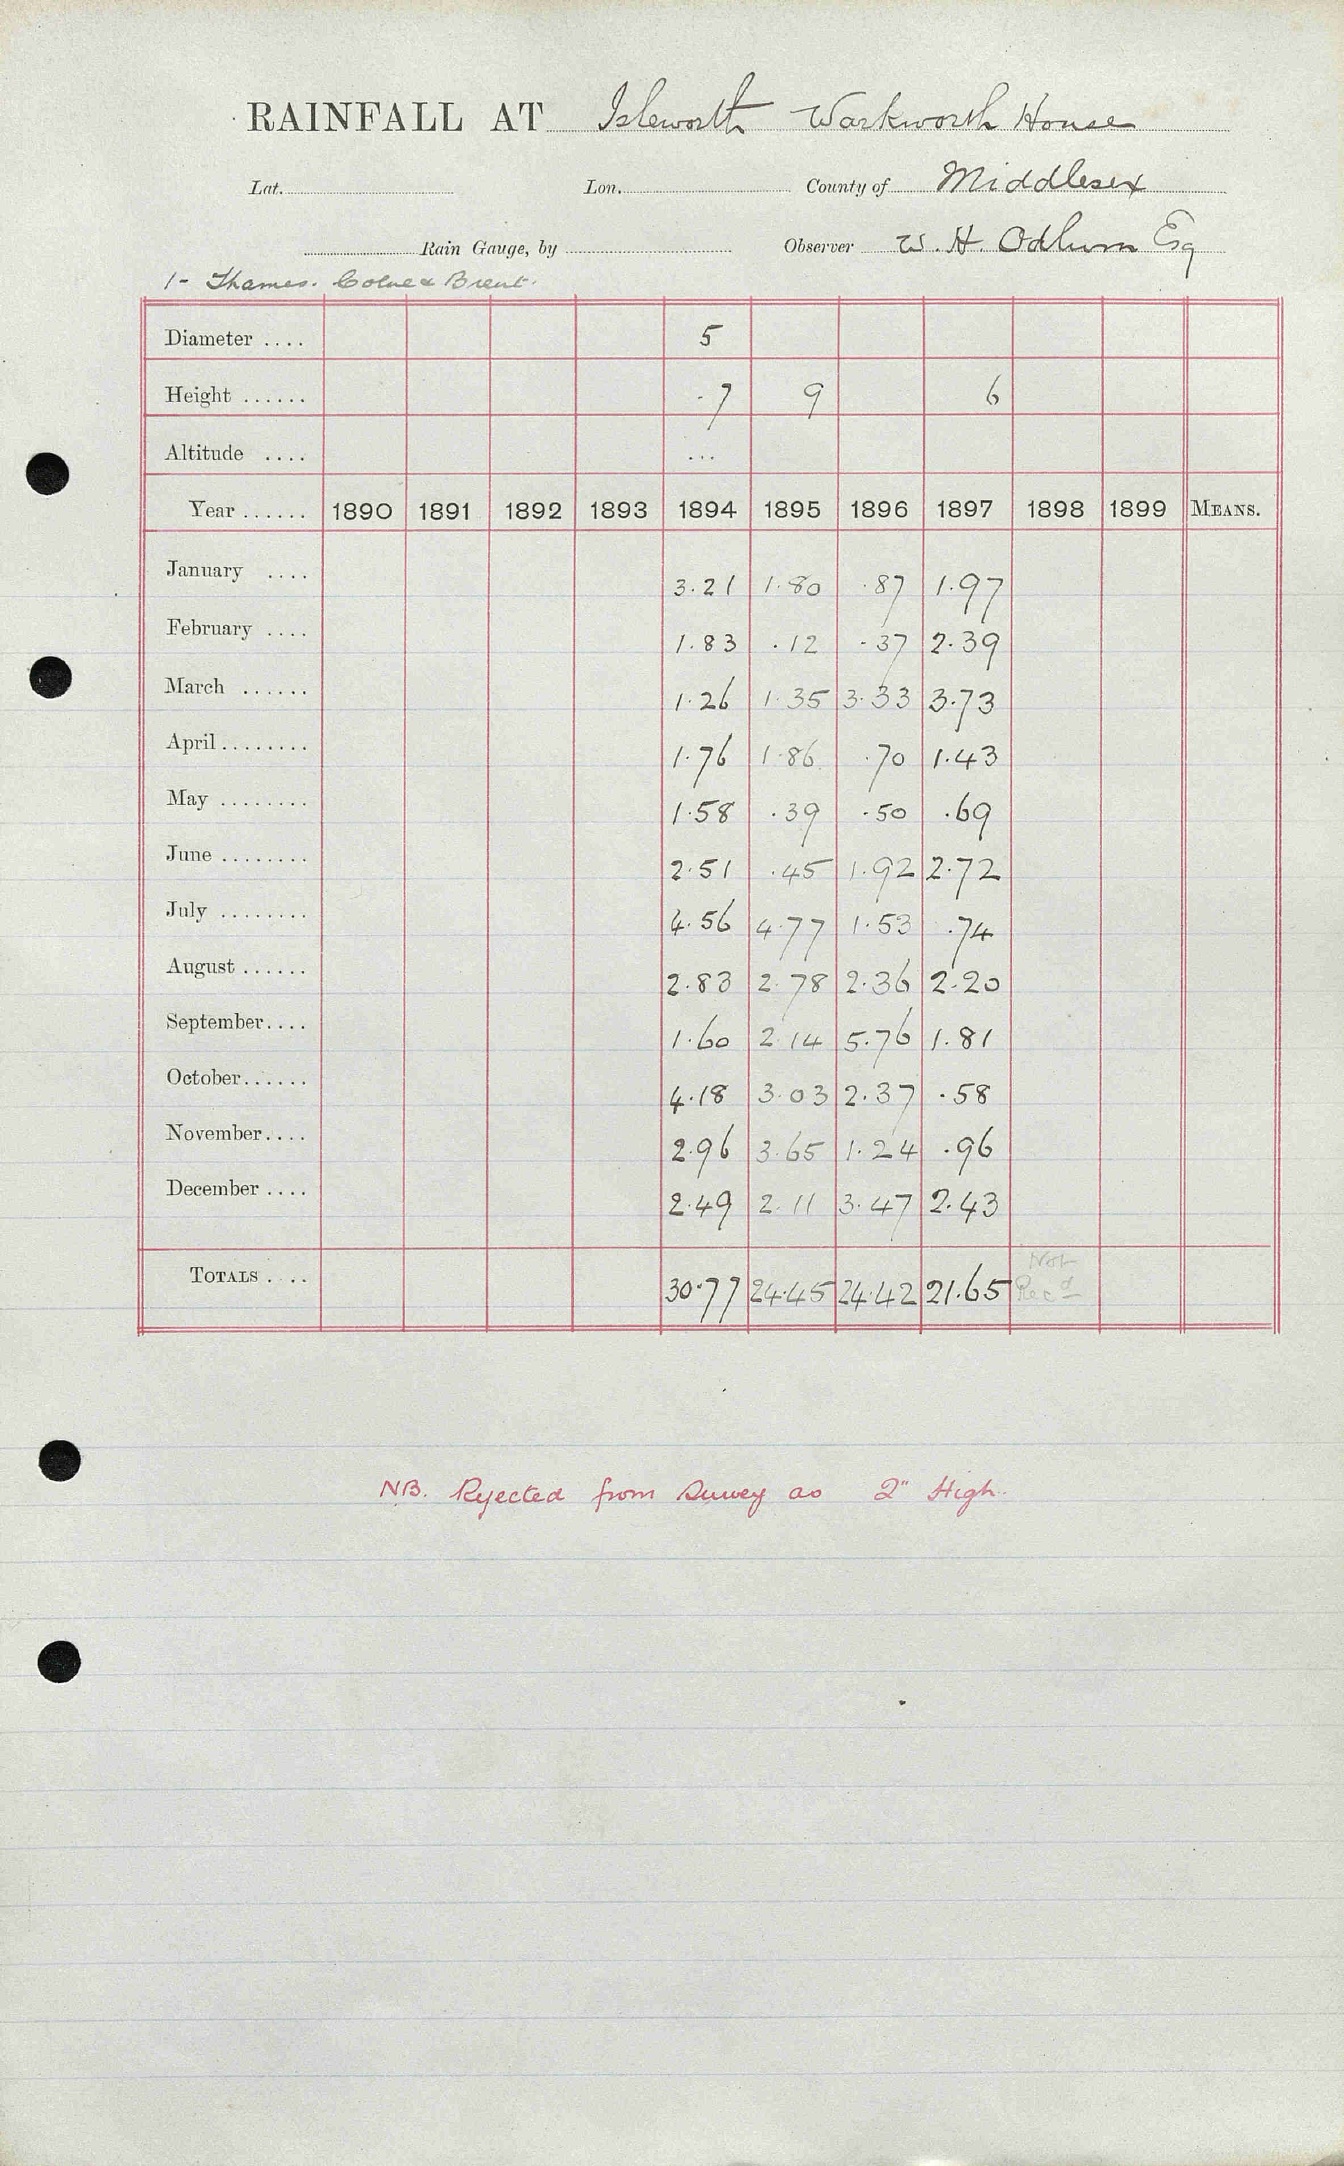 RAINFALL AT Isleworth Warkworth House
Lat. Lon. County of Middlesex
Rain Gauge, by Observer W. H. Odlum Esq
1 - Thames. Colne & Brent.
Diameter .... 5
Height ...... ·7 9 6
Altitude .... ...
Year ...... 1890 1891 1892 1893 1894 1895 1896 1897 1898 1899 MEANS.
January .... 3.21 1.80 .87 1.97
February .... 1.83 .12 .37 2.39
March ...... 1.26 1.35 3.33 3.73
April ........ 1.76 1.86 .70 1.43
May ........ 1.58 .39 .50 .69
June ........ 2.51 .45 1.92 2.72
July ........ 4.56 4.77 1.53 .74
August ...... 2.83 2.78 2.36 2.20
September.... 1.60 2.14 5.76 1.81
October...... 4.18 3.03 2.37 .58
November.... 2.96 3.65 1.24 .96
December .... 2.49 2.11 3.47 2.43
TOTALS .... 30.77 24.45 24.42 21.65 Not Recd
NB. Rejected from Survey as 2" High.